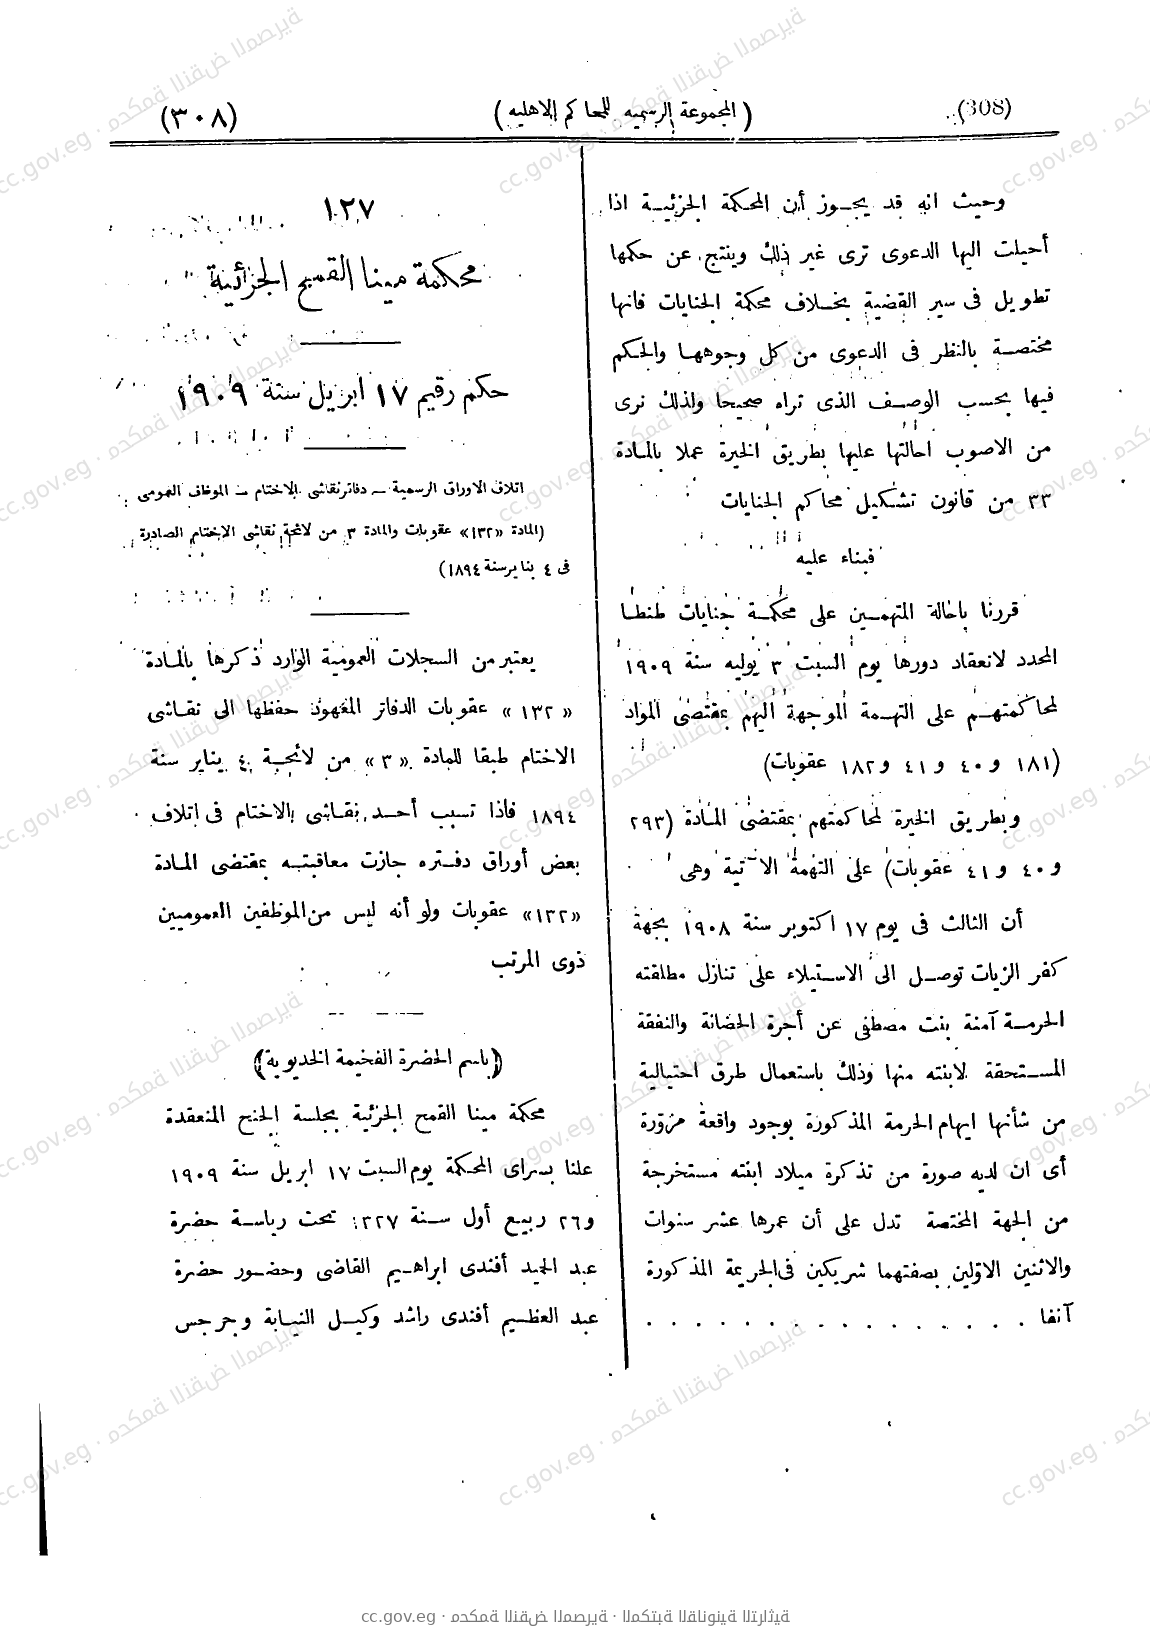 (308)
(المجموعة الرسميه للمحاكم الاهليه)
(٣٠٨)
وحيث انه قد يجوز أن المحكمة الجزئية اذا
أحيلت اليها الدعوى ترى غير ذلك وينتج عن حكمها
تطويل فى سير القضية بخلاف محكمة الجنايات فانها
مختصة بالنظر فى الدعوى من كل وجوهها والحكم
فيها بحسب الوصف الذى تراه صحيحا ولذلك نرى
من الاصوب احالتها عليها بطريق الخيرة عملا بالمادة
٣٣ من قانون تشكيل محاكم الجنايات
فبناء عليه
قررنا باحالة المتهمين على محكمة جنايات طنطا
المحدد لانعقاد دورها يوم السبت ٣ يوليه سنة ١٩٠٩
لمحاكمتهم على التهمة الموجهة اليهم بمقتضى المواد
(١٨١ و ٤٠ و ٤١ و ١٨٢ عقوبات)
وبطريق الخيرة لمحاكمتهم بمقتضى المادة (٢٩٣
و ٤٠ و ٤١ عقوبات) على التهمة الآتية وهى
أن الثالث فى يوم ١٧ اكتوبر سنة ١٩٠٨ بجهة
كفر الزيات توصل الى الاستيلاء على تنازل مطلقته
الحرمة آمنة بنت مصطفى عن أجرة الحضانة والنفقة
المستحقة لابنته منها وذلك باستعمال طرق احتيالية
من شأنها ايهام الحرمة المذكورة بوجود واقعة مزورة
أى ان لديه صورة من تذكرة ميلاد ابنته مستخرجة
من الجهة المختصة تدل على أن عمرها عشر سنوات
والاثنين الاولين بصفتهما شريكين فى الجريمة المذكورة
آنفا . . . . . . . . . . . . . . . .
١٢٧
محكمة مينا القمح الجزئية
حكم رقيم ١٧ ابريل سنة ١٩٠٩
اتلاف الاوراق الرسمية – دفاتر نقاشى الاختام – الموظف العمومى
(المادة «١٣٢» عقوبات والمادة ٣ من لائحة نقاشى الاختام الصادرة
فى ٤ يناير سنة ١٨٩٤)
يعتبر من السجلات العمومية الوارد ذكرها بالمادة
«١٣٢» عقوبات الدفاتر المعهود حفظها الى نقاشى
الاختام طبقا للمادة «٣» من لائحة ٤ يناير سنة
١٨٩٤ فاذا تسبب أحد نقاشى الاختام فى اتلاف
بعض أوراق دفتره جازت معاقبته بمقتضى المادة
«١٣٢» عقوبات ولو أنه ليس من الموظفين العموميين
ذوى المرتب
(باسم الحضرة الفخيمة الخديوية)
محكمة مينا القمح الجزئية بجلسة الجنح المنعقدة
علنا بسراى المحكمة يوم السبت ١٧ ابريل سنة ١٩٠٩
و٢٦ ربيع أول سنة ١٣٢٧ تحت رياسة حضرة
عبد الحميد أفندى ابراهيم القاضى وحضور حضرة
عبد العظيم أفندى راشد وكيل النيابة وجرجس
cc.gov.eg · محكمة النقض المصرية · المكتبة القانونية التراثية